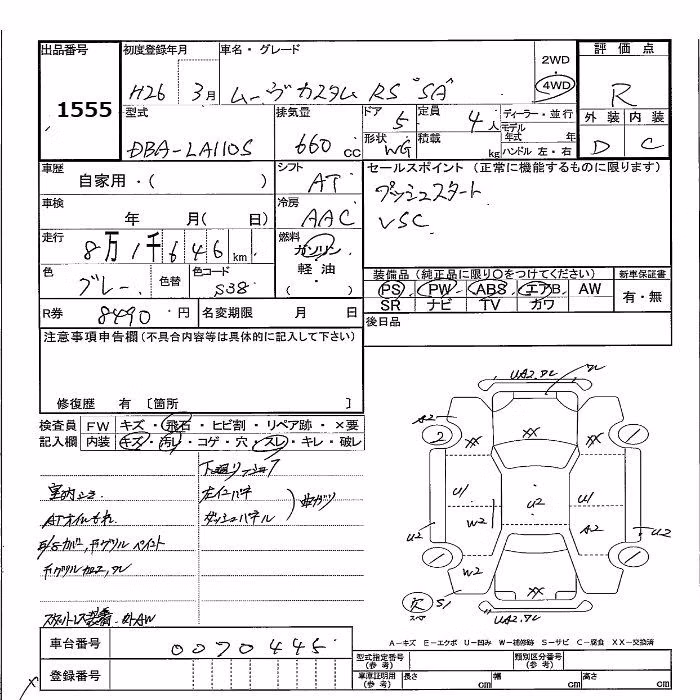 出品番号 初度登録年月 車名・グレード 評価点
1555 H26年 3月 ムーヴカスタム RS "SA" 2WD 4WD R
型式 排気量 ドア 5 定員 4人 ディーラー・並行 外装 内装
DBA-LA110S 660cc 形状 WG 積載 kg モデル年式 年 ハンドル 左・右 D C
車歴 自家用・( ) シフト AT セールスポイント (正常に機能するものに限ります)
車検 年 月( 日) 冷房 AAC プッシュスタート
VSC
走行 8万1千646km 燃料 ガソリン
軽油
・( )
色 グレー 色替 色コード S38
装備品 (純正品に限り○をつけてください) 新車保証書
PS PW ABS エアB AW 有・無
SR ナビ TV カワ
R券 8490・円 名変期限 月 日 後日品
注意事項申告欄 (不具合内容等は具体的に記入して下さい)
修復歴 有 〔箇所 〕
検査員 FW キズ・飛石・ヒビ割・リペア跡・×要
記入欄 内装 キズ・汚レ・コゲ・穴・スレ・キレ・破レ
下廻り
ATオイルもれ
ダッシュパネル
UA2.ワレ
A2 XX XX XX
2
U1 U2 U1
W2 A2
U2 U2
W2 XX
欠 S1
UA2.ワレ
A-キズ E-エクボ U-凹み W-補修跡 S-サビ C-腐食 XX-交換済
車台番号 0070445
登録番号
型式指定番号 (参考) 類別区分番号 (参考)
車庫証明用 (参考) 長さ cm 幅 cm 高さ cm